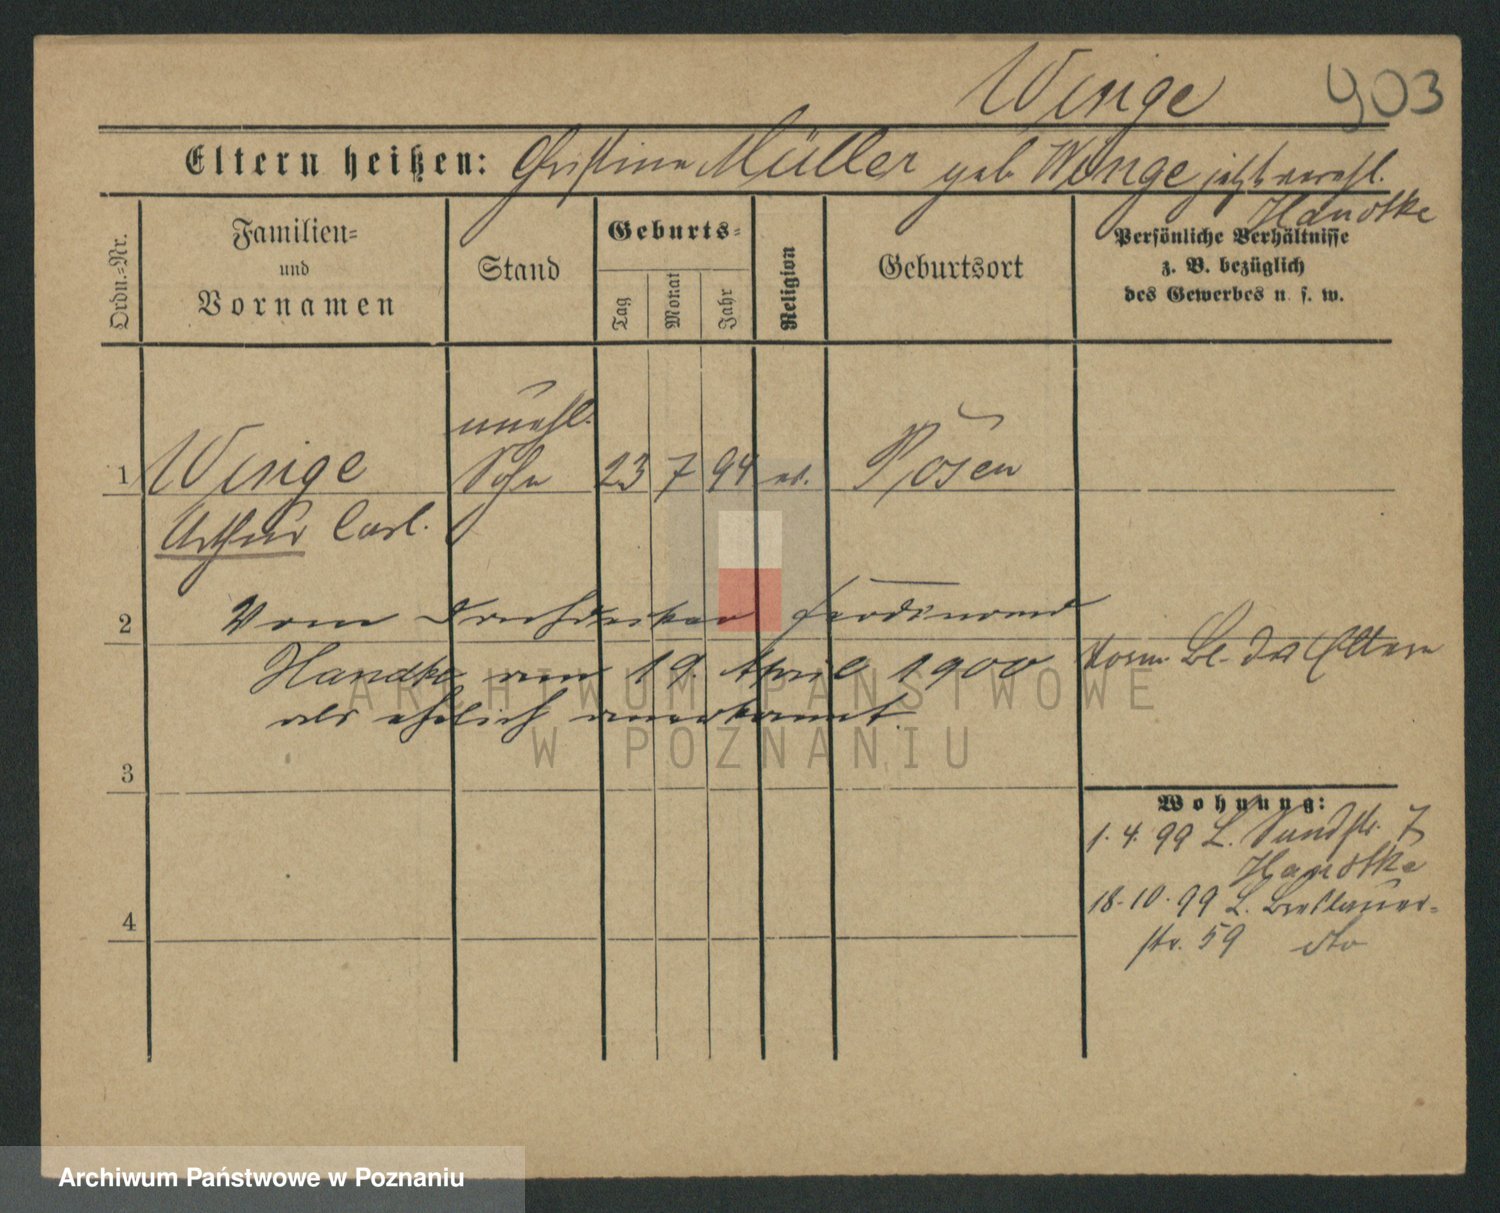 Wenge 903
Eltern heißen: Christine Müller geb. Wenge jetzt verehl.
Handtke
Ordn.-Nr.
Familien-
und
Vornamen
Stand
Geburts-
Tag
Monat
Jahr
Religion
Geburtsort
Persönliche Verhältnisse
z. B. bezüglich
des Gewerbes u. s. w.
unehl.
1 Wenge Sohn 23 7 94 ev. Posen
Arthur Carl.
2 Vom Ferdinand
Handtke am 19. April 1900
als ehelich anerkannt.
Bl. der Eltern
3
Wohnung:
1. 4. 99 L. 7
Handtke
18-10-99 L. Breslauer-
str. 59 dto
4
ARCHIWUM PAŃSTWOWE
W POZNANIU
Archiwum Państwowe w Poznaniu